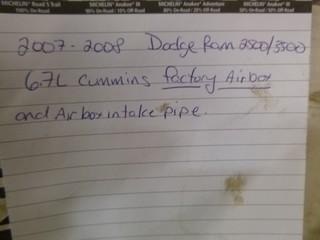 MICHELIN® Road 5 Trail MICHELIN® Anakee® III MICHELIN® Anakee® Adventure MICHELIN® Anakee® III
100% On-Road 90% On-Road / 10% Off-Road 80% On-Road / 20% Off-Road 50% On-Road / 50% Off-Road
2007-2008 Dodge Ram 2500/3500
6.7L Cummins factory Airbox
and Airbox intake pipe.